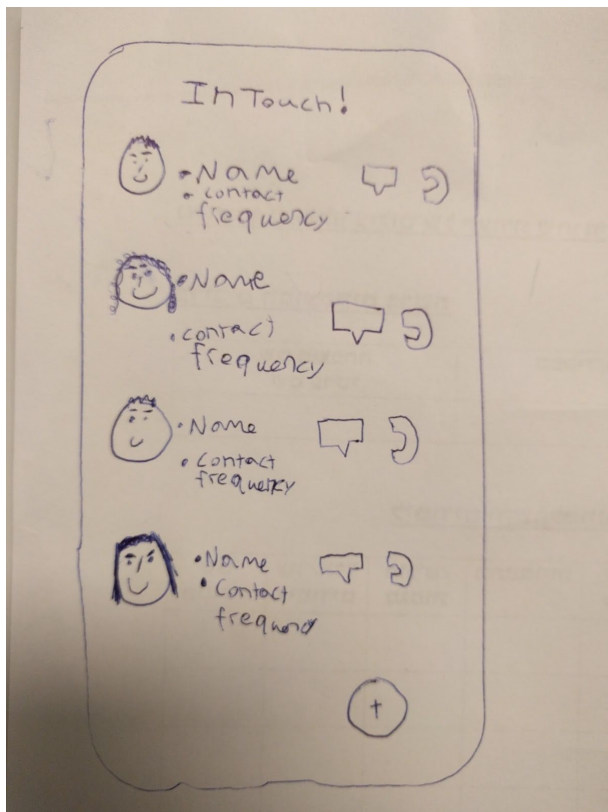 InTouch!
• Name
• contact
frequency
• Name
• contact
frequency
• Name
• contact
frequency
• Name
• Contact
+